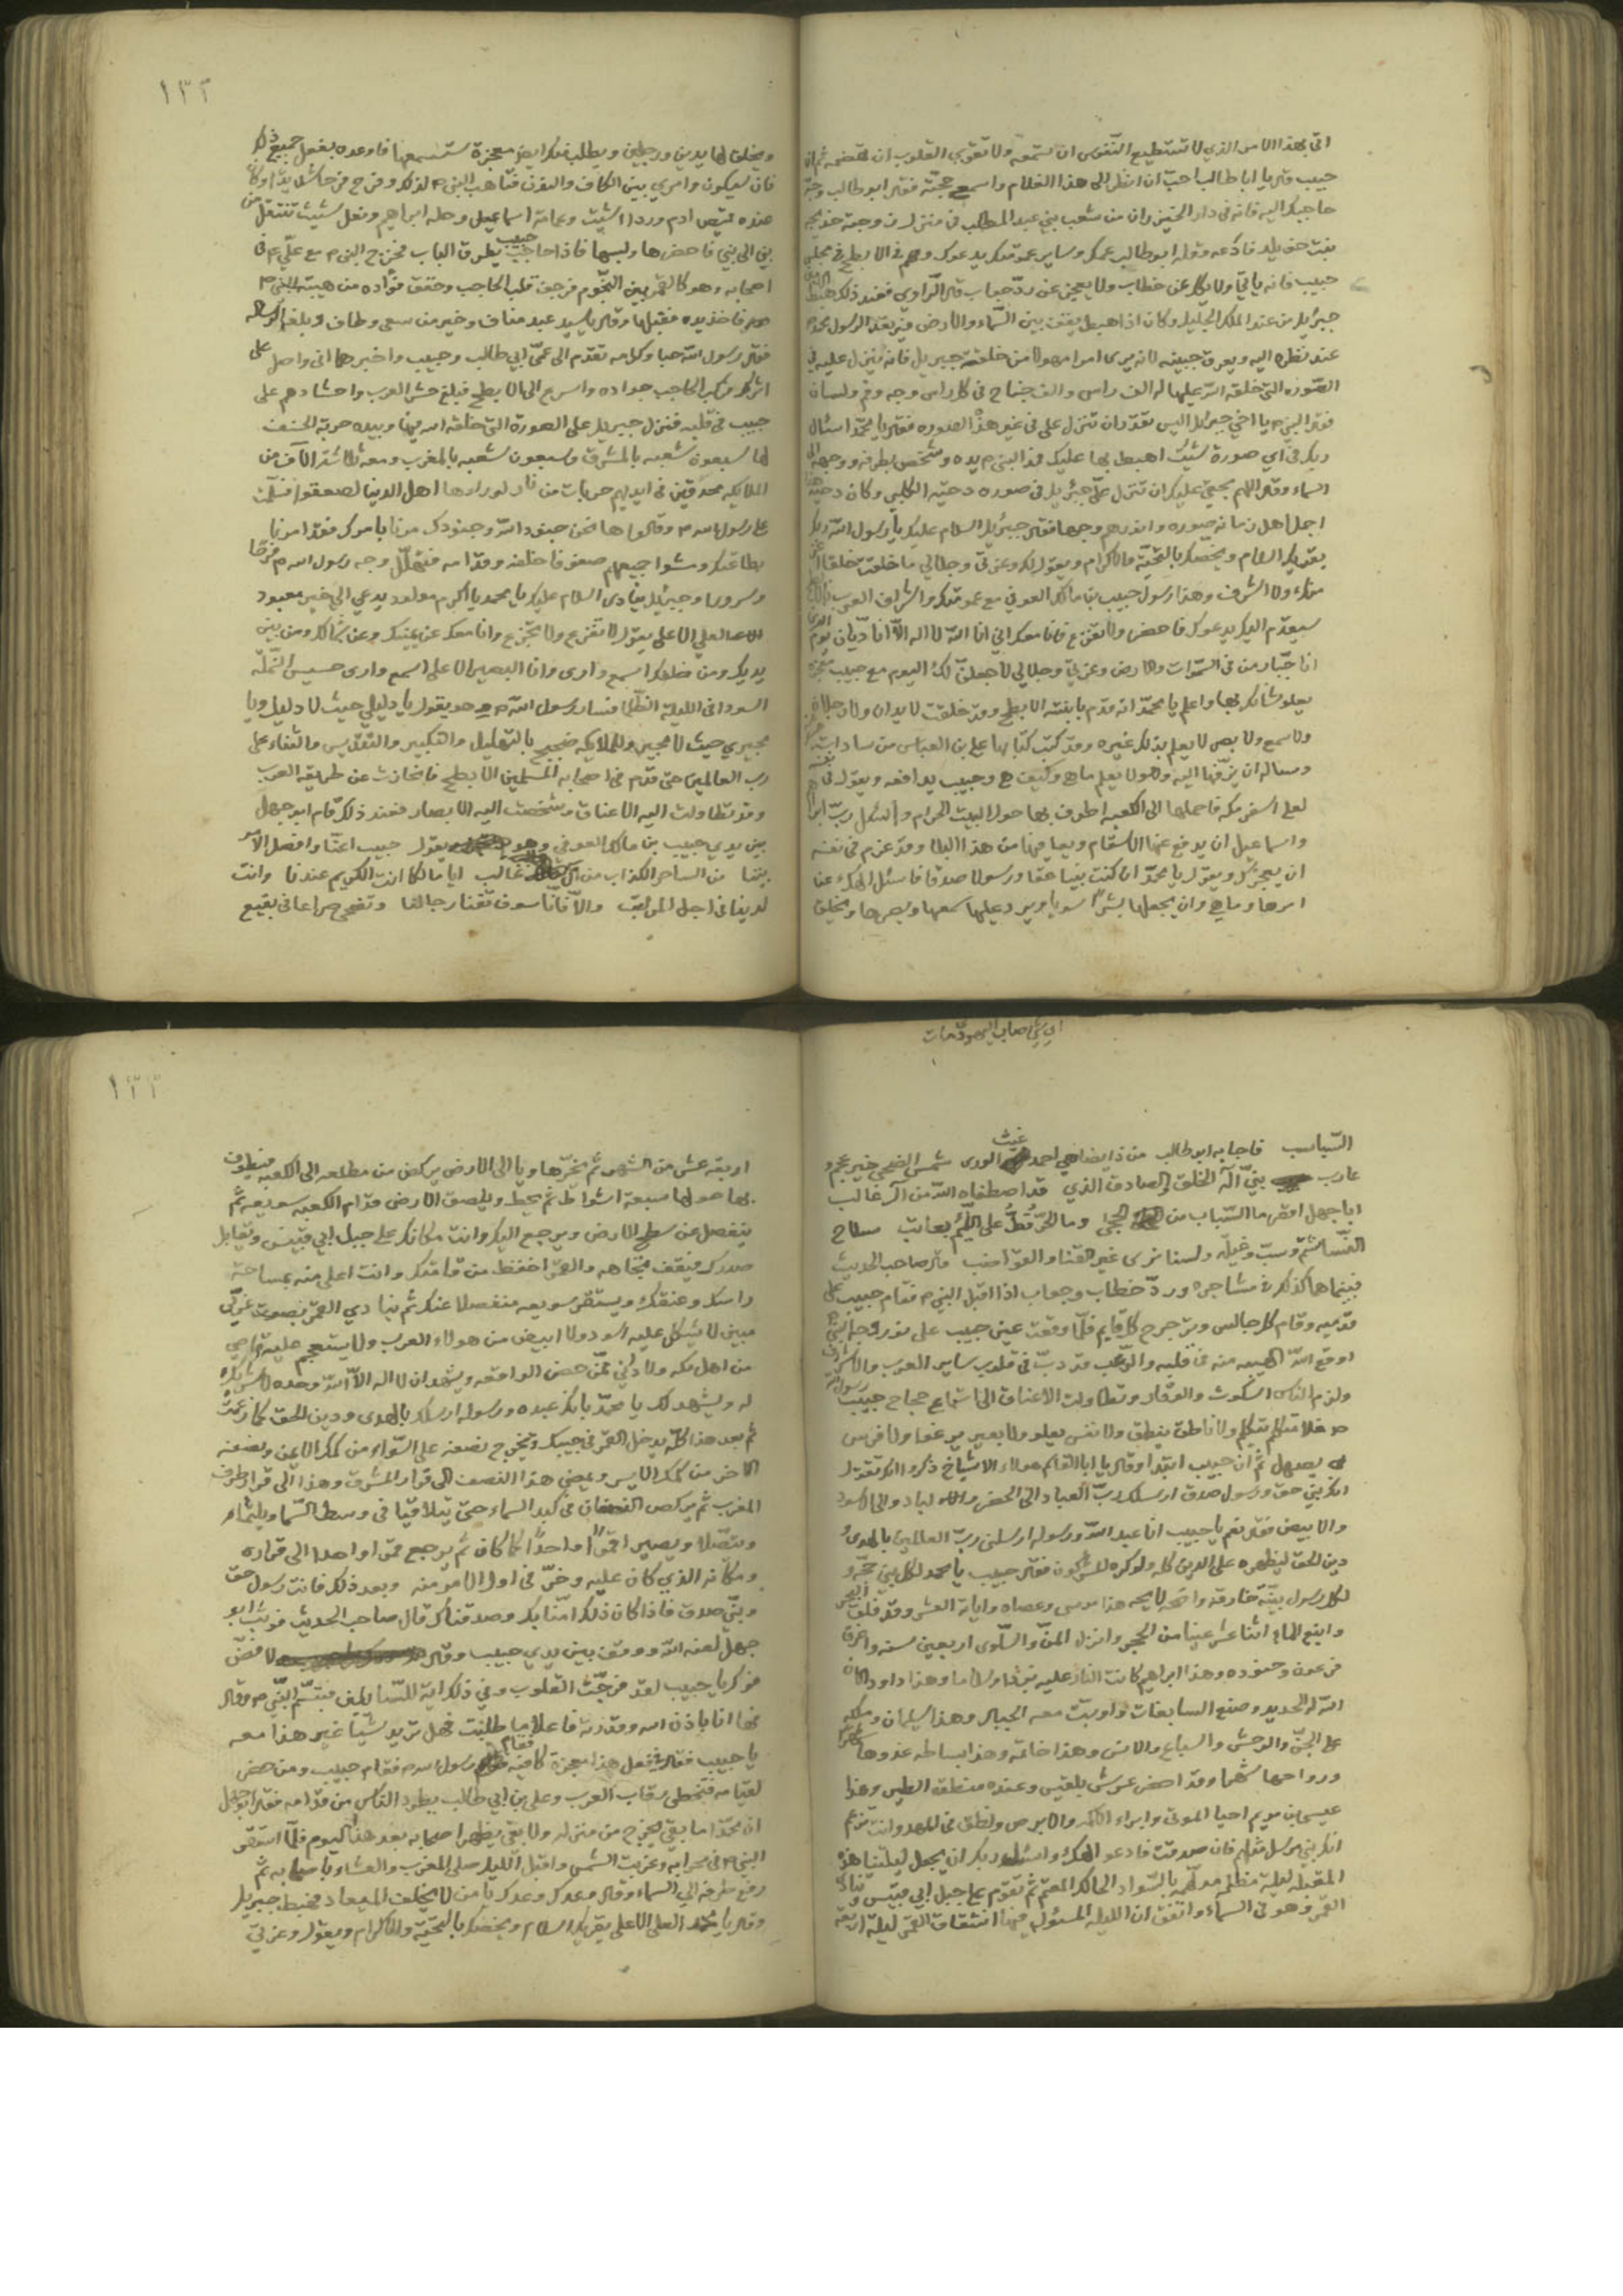 اتى بهذا الامر الذي لا تستطيع النفوس ان تسمعه ولا تقوى القلوب ان تهضمه ثم ان
حبيب قال يا ابا طالب احب ان انظر الى هذا الغلام واسمع حجته فقال ابو طالب وجه
حاجبك اليه فانه في دار الخيزران من شعب بني عبد المطلب في منزل زوجته خديجه
بنت خويلد فادعه وقوله ابو طالب عمك وساير عمومتك يدعوك وهم في الابطح في مجلس
حبيب فانه ياتي ولا يكل عن خطاب ولا يعجز عن رد جواب قال الراوي فعند ذلك هبط
جبرئيل من عند الملك الجليل وكان اذا هبط يقف بين السماء والارض فيرتعد الرسول محمد
عند نظره اليه ويعرق جبينه لانه يرى امرا مهولا من خلقة جبريل فانه ينزل عليه في
الصوره التي خلقه الله عليها له الف راس والف جناح في كل راس وجه وفم ولسان
فقال النبي م يا اخي جبرئيل اليس تقدر ان تنزل علي في غير هذه الصوره فقال يا محمد اسئال
ربك في اي صورة شئت اهبط بها عليك فمد النبي م يده وشخص بطرفه ووجهه الى
السماء وقال اللهم بحقي عليك ان تنزل علي جبرئيل في صوره دحيه الكلبي وكان دحيه
اجمل اهل زمانه صوره وانورهم وجها فقال جبرئيل السلام عليك يا رسول الله ربك
يقريك السلام ويخصك بالتحيه والاكرام ويقول لك وعزتي وجلالي ما خلقت خلقا
مثلك ولا اشرف وهذا رسول حبيب بن مالك العوفي مع عمومتك واشراف العرب
سيقدم اليك يدعوك فاحضر ولا تفزع فانا معك اني انا الله لا اله الا انا ديان يوم الدين
انا جبار من في السموات والارض وعزتي وجلالي لاجعلن لك اليوم مع حبيب
يعلو شانك بها واعلم يا محمد انه قدم بابنته الابطح وقد خلقت لا يدان ولا رجلان
ولا سمع ولا بصر لا يعلم بذلك غيره وقد كتب كتابها على بن العباس من سادات
وساله ان يزفها اليه وهو لا يعلم ما هي وكيف هي وحبيب يدافعه ويقول في نفسه
لعلى اسفر مكه فاحملها الى الكعبه اطوف بها حول البيت الحرام واسئل رب ابراهيم
واسماعيل ان يدفع عنها الاسقام ويعافيها من هذا البلا وقد عزم في نفسه
ان يعجزك ويقول يا محمد ان كنت نبيا حقا ورسولا صدقا فاسئل الهك عنا
امرها وما هي وان يجعلها بشرا سويا ويرد عليها سمعها وبصرها ويخلق
١٣٢
ويخلق لها يدين ورجلين ويطلب منك ايضا معجزة ستسمعها فاوعده بفعل جميع ذلك
فان سيكون وامري بين الكاف والنون فتاهب النبي م لذلك وفرح فرحا شديدا وكان
عنده قميص ادم وردا شيث وعمامة اسماعيل وحلة ابراهيم ونعل شيث تنتقل من
نبي الى نبي فاحضرها ولبسها فاذا حاجب حبيب يطرق الباب فخرج النبي م مع علي م في
اصحابه وهو كالقمر بين النجوم فرجف قلب الحاجب وخفق فؤاده من هيبة النبي م
فاخذ يده فقبلها وقال يا سيد عبد مناف وخير من سعى وطاف وبلغه الرساله
فقال رسول الله حبا وكرامه تقدم الى عمي ابي طالب وحبيب واخبرهما اني واصل على
اثرك فركب الحاجب جواده واسرع الى الابطح فبلغ حشر العرب واحشادهم على
حبيب في قلبه فنزل جبريل على الصورة التي خلقه الله فيها وبيده حربة الخسف
لها سبعون شعبه بالمشرق وسبعون شعبه بالمغرب ومعه ثلاثة الاف من
الملايكه محدقين في ايديهم حربات من نار لو راوها اهل الدنيا لصعقوا فسلمت
على رسول الله م وقالوا ها نحن جنود الله وجنودك مرنا بامرك فقد امرنا
بطاعتك ومشوا جميعهم صفوفا خلفه وقدامه فتهلل وجه رسول الله م فرحا
وسرورا وجبرئيل ينادي السلام عليك يا محمد يا اكرم مولود يدعي الى خير معبود
العلي الاعلى يقول لا تفزع ولا تجزع وانا معك عن يمينك وعن شمالك ومن بين
يديك ومن خلفك اسمع وارى وانا البصير الاعلى اسمع وارى حسيس النمله
السودا في الليلة الظلما فسار رسول الله م وهو يقول يا دليلي حيث لا دليل ويا
مجيري حيث لا مجير وللملايكه ضجيج بالتهليل والتكبير والتقديس والثناء على
رب العالمين حتى قدم في اصحابه المسلمين الابطح فانحازت عن طريقه العرب
وقد تطاولت اليه الاعناق وشخصت اليه الابصار فعند ذلك قام ابو جهل
بين يدي حبيب بن مالك العوفي وهو يقول حبيب اعنا وافصل الامر
بيننا من الساحر الكذاب من آل غالب ايا مالكا انت الكريم عندنا وانت
لدينا في اجل المراتب والا فانا سوف تفنا رجالنا وتضحي صراعا في بقيع
السباسب فاجابه ابو طالب من ذا يضاهي احمد غيث الورى شمس الضحى خير عجم و
عارب نبي اله الخلق والصادق الذي قد اصطفاه الله من آل غالب
ايا جهل اقصر ما السباب من الحجى وما الحر قط على اللئيم بعاتب سلاح
النسا شتم وسب وغيله ولسنا نرى غير القنا والقواضب قال صاحب الحديث
فبينما هما كذلك في مشاجره ورد خطاب وجواب اذا اقبل النبي م فقام حبيب على
قدميه وقام كل جالس وتزحزح كل قايم فلما وقعت عين حبيب على نور وجه النبي م
اوقع الله الهيبه منه في قلبه والرعب قد دب في قلوب ساير العرب والاشراف
ولزم الناس السكوت والوقار وتطاولت الاعناق الى استماع حجاج حبيب رسول الله
م فلا متكلم يتكلم ولا ناطق ينطق ولا نفس يعلو ولا بعير يرغوا ولا فرس
يصهل ثم ان حبيب ابتدا وقال يا ابا القاسم هولاء الاشياخ ذكروا انك تقول
انك نبي حق ورسول صدق ارسلك رب العباد الى الحضر والباد والى الاسود
والابيض فقال نعم يا حبيب انا عبد الله ورسوله ارسلني رب العالمين بالهدى و
دين الحق ليظهره على الدين كله ولو كره المشركون فقال حبيب يا محمد لكل نبي حجه و
لكل رسول بينه خارقه واضحه لايحه هذا موسى وعصاه واياته العشر وقد فلق البحر
وانبع الماء اثنا عشر عينا من الحجر وانزل المن والسلوى اربعين سنه واغرق
فرعون وجنوده وهذا ابراهيم كانت النار عليه بردا وسلاما وهذا داود الان
الله له الحديد وصنع السابغات واوبت معه الجبال وهذا سليمان وملكه
على الجن والوحش والسباع والانس وهذا خاتمه وهذا بساطه غدوها شهر
ورواحها شهرا وقد احضر عرش بلقيس وعنده منطق الطير وهذا
عيسى بن مريم احيا الموتى وابراء الاكمه والابرص ونطق في المهد وانت تزعم
انك نبي مرسل مثلهم فان صدقت فادعو الهك واسئل ربك ان يجعل ليلتنا هذه
المقبله ليلة مظلمه مدلهمه بالسواد الحالك المعتم ثم تقوم على جبل ابي قبيس وتنادي
القمر وهو في السماء واتفق ان الليله المسئوله فيها انشقاق القمر ليلة اربعة
١٣٣
اربعة عشر من الشهر ثم يخر هاويا الى الارض يركض من مطلعه الى الكعبه فيطوف
بها حولها سبعة اشواط ثم يحط ويلصق الارض قدام الكعبه سويعه ثم
ينفصل عن سطح الارض ويرجع اليك وانت مكانك على جبل ابي قبيس ويقابل
صدرك فيقف تجاهه والقمر اخفض من قامتك وانت اعلى منه بمساحة
راسك وعنقك ويستقر سويعه منفصلا عنك ثم ينادي القمر بصوت عربي
مبين لا يشكل عليه اسود ولا ابيض من هولاء العرب ولا يستعجم عليه قاصي
من اهل مكه ولا داني ممن حضر الواقعه ويشهد ان لا اله الا الله وحده لا شريك
له ويشهد لك يا محمد بانك عبده ورسوله ارسلك بالهدى ودين الحق كما زعمت
ثم بعد هذا كله يدخل القمر في جيبك ويخرج نصفه على السواء من كمك الايمن ونصفه
الاخر من كمك الايسر ويمضي هذا النصف الى قرار المشرق وهذا الى قرار طرف
المغرب ثم يركض النصفان في كبد السماء حتى يتلاقيا في وسط السما ويلتئما
ويتصلا ويصير قمرا واحدا كما كان ثم يرجع قمرا واحدا الى قراره
ومكانه الذي كان عليه وخر في اول الامر منه وبعد ذلك فانت رسول حق
ونبي صدق فاذا كان ذلك امنا بك وصدقناك قال صاحب الحديث فوثب ابو
جهل لعنه الله ووقف بين يدي حبيب وقال لا فض
فوك يا حبيب لقد فرجت القلوب وفي ذلك اية للسايلين فتبسم النبي م وقال
نعم انا باذن الله وقدرته فاعلا ما طلبت فهل تريد شيئا غير هذا معه
يا حبيب فقال في فعل هذا معجزة كافيه فقام رسول الله م فقام حبيب ومن حضر
لقيامه فتخطى رقاب العرب وعلي بن ابي طالب يطرد الناس من قدامه فقال ابو جهل
ان محمدا ما بقي يخرج من منزله ولا بقي يظهر اصحابه بعد هذا اليوم فلما استقر
النبي م في محرابه وغربت الشمس واقبل الليل صلى المغرب والعشاء باصحابه ثم
رفع طرفه الى السماء وقال وعدك وعدك يا من لا يخلف الميعاد فهبط جبريل
وقال يا محمد العلي الاعلى يقريك السلام ويخصك بالتحية والاكرام ويقول وعزتي